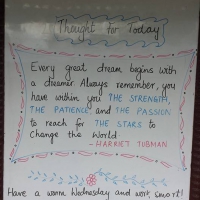 Thought for Today
Every great dream begins with
a dreamer. Always remember, you
have within you THE STRENGTH,
THE PATIENCE and THE PASSION
to reach for THE STARS to
Change the World.
- HARRIET TUBMAN
Have a warm Wednesday and work smart!